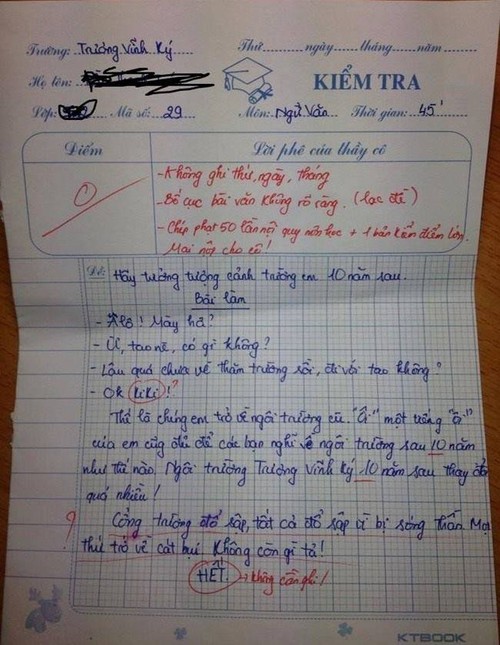 Trường: Trương Vĩnh Ký Thứ ngày tháng năm
Họ tên:
KIỂM TRA
Lớp: Mã số: 29 Môn: Ngữ Văn Thời gian: 45'
Điểm Lời phê của thầy cô
0
- Không ghi thứ, ngày, tháng
- Bố cục bài văn không rõ ràng. (lạc đề)
- Chép phạt 50 lần nội quy môn học + 1 bản kiểm điểm lớn.
Mai nộp cho cô!
Đề: Hãy tưởng tượng cảnh trường em 10 năm sau.
Bài làm
- Alô! Mày hả?
- Ừ, tao nè, có gì không?
- Lâu quá chưa về thăm trường rồi, đi với tao không?
- Ok KiKi! ?
Thế là chúng em trở về ngôi trường cũ. "Ôi" một tiếng "ôi"
của em cũng đủ để các bạn nghĩ về ngôi trường sau 10 năm
như thế nào. Ngôi trường Trương Vĩnh Ký 10 năm sau thay đổi
quá nhiều!
? Cổng trường đổ sập, tất cả đổ sập vì bị sóng thần. Mọi
thứ trở về cát bụi. Không còn gì tả!
HẾT. → không cần ghi!
KTBOOK